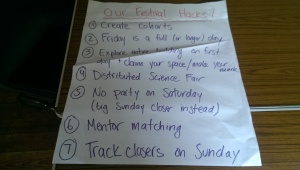 Our Festival Hacks!!
1 Create cohorts
2 Friday is a full (or longer) day
3 Explore intro building on first
day + claim your space/make your
4 Distributed Science Fair
5 No party on Saturday
(big Sunday closer instead)
6 Mentor matching
7 Track closers on Sunday